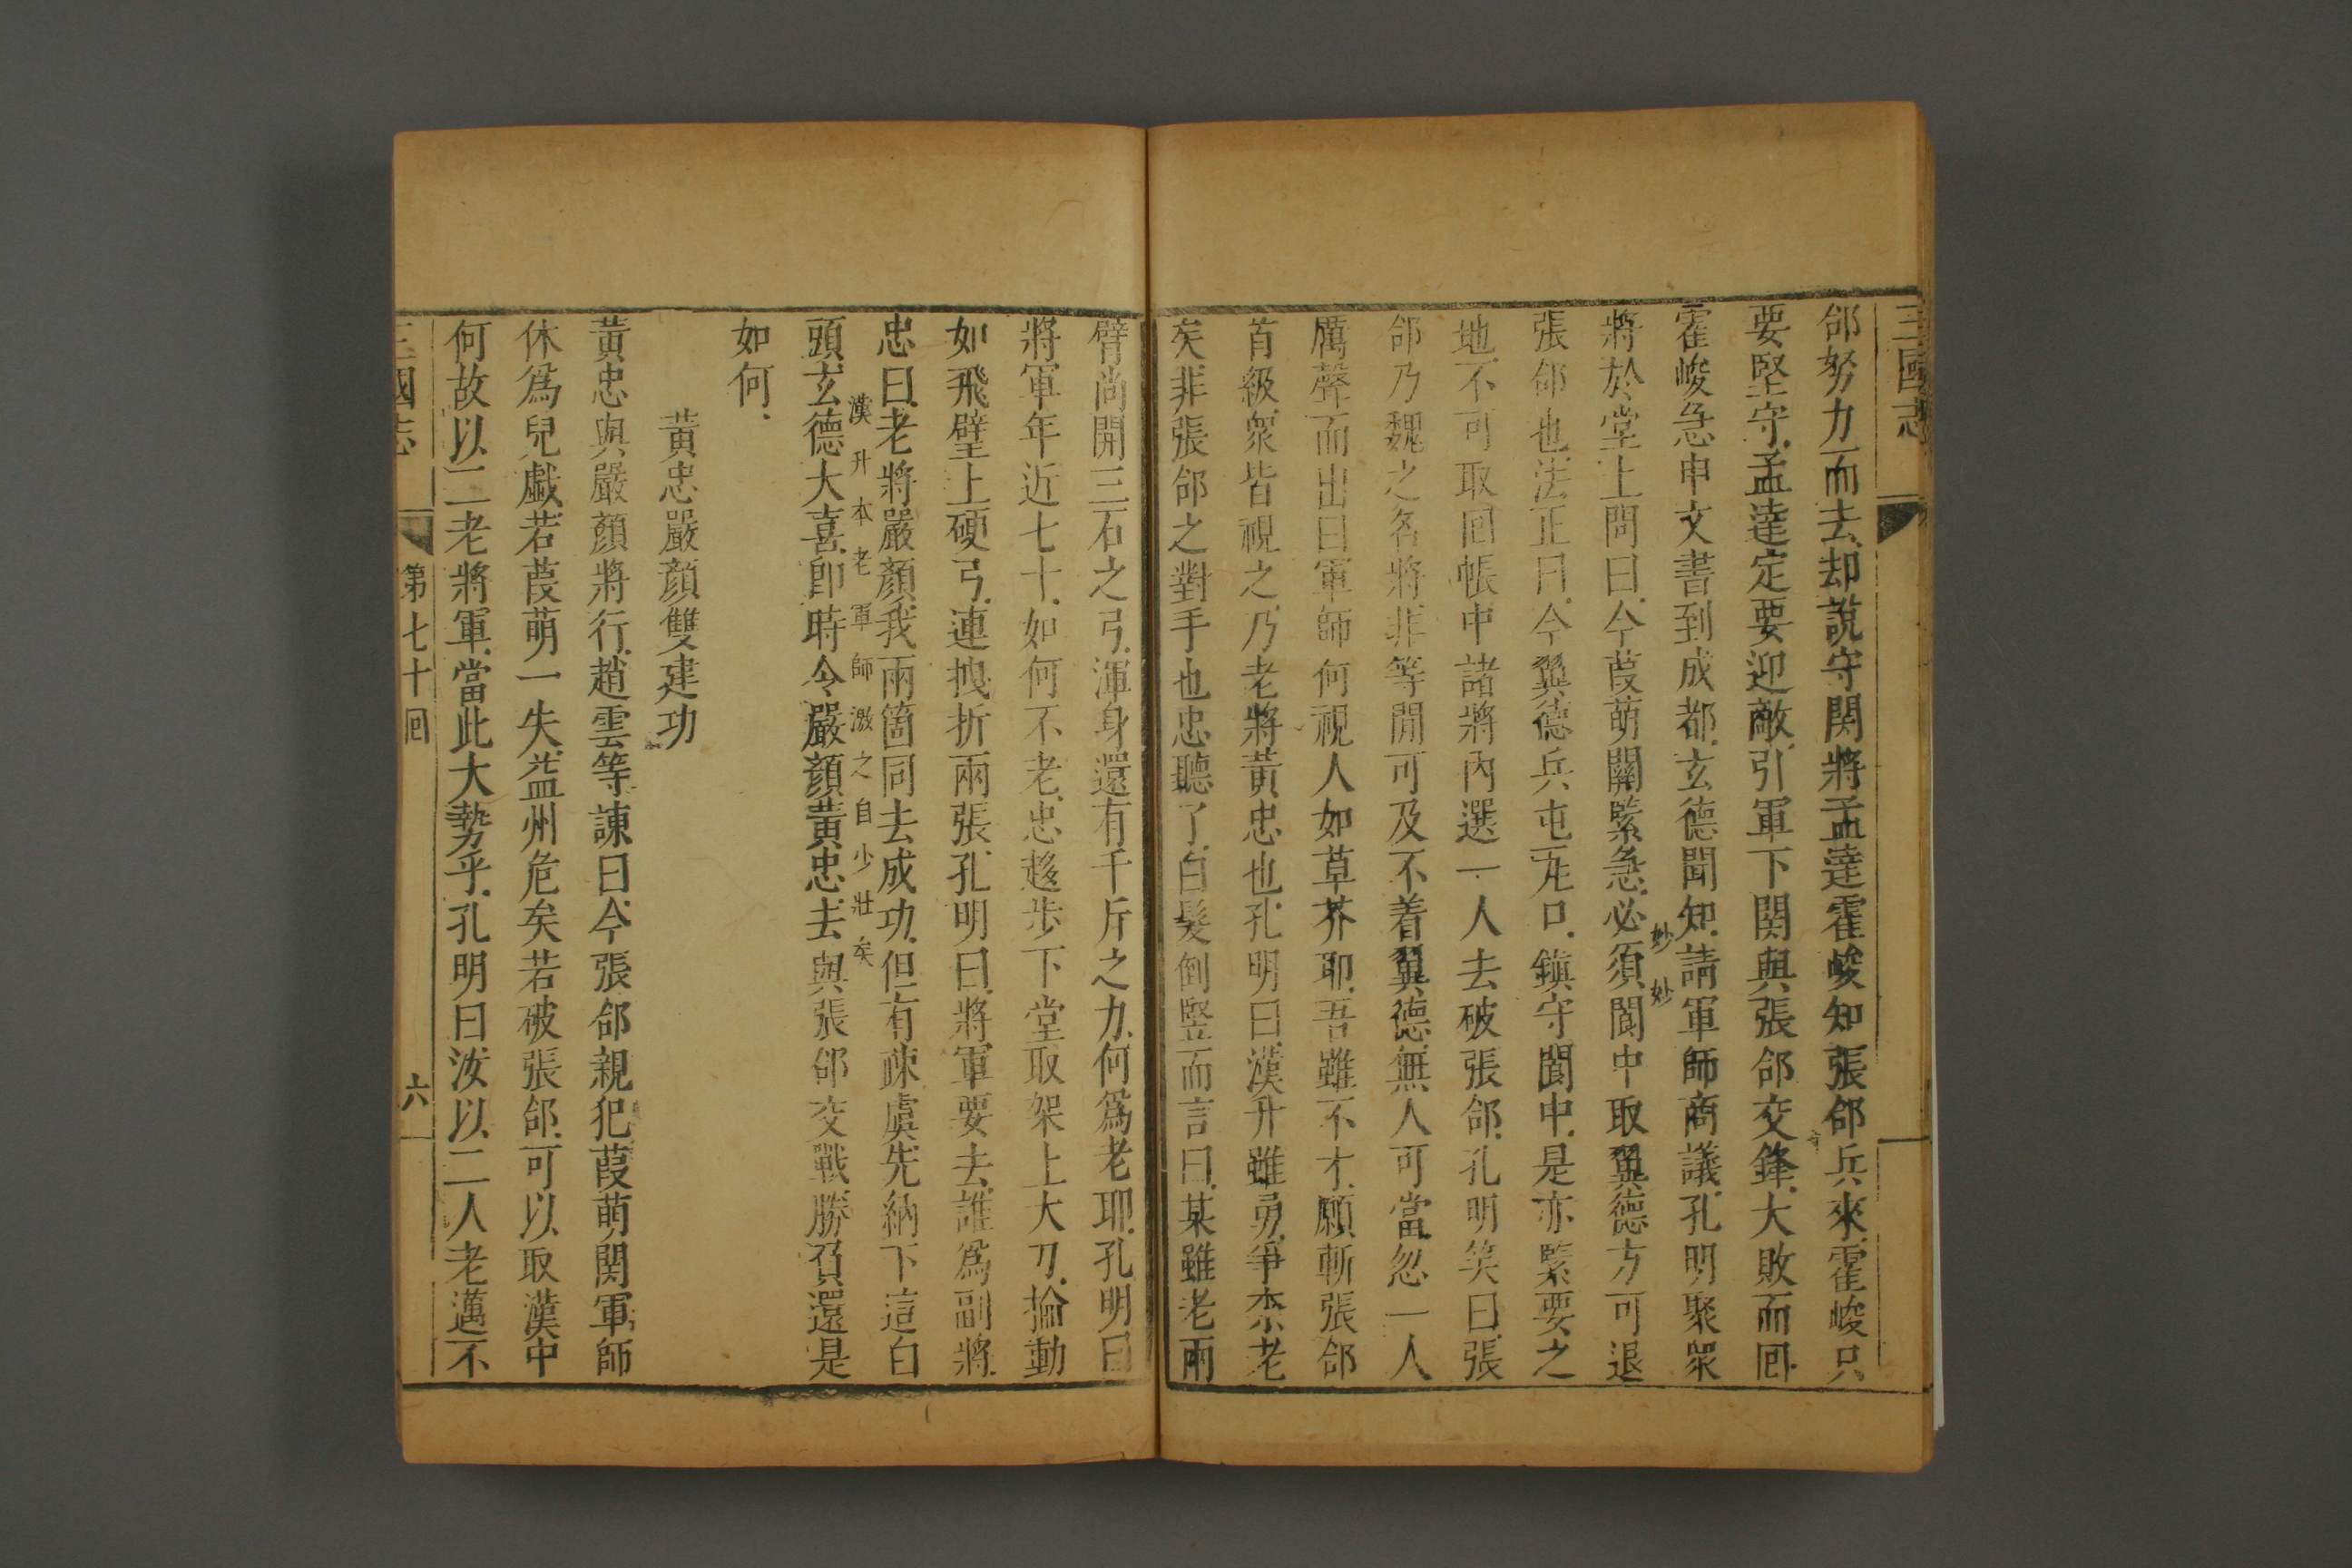 三國志
郃努力而去却說守関將孟達霍峻知張郃兵來霍峻只
要堅守孟達定要迎敵引軍下関與張郃交鋒大敗而回
霍峻急申文書到成都玄德聞知請軍師商議孔明聚衆
妙妙
將於堂上問曰今葭萌關緊急必須閬中取翼德方可退
張郃也法正曰今翼德兵屯瓦口鎮守閬中是亦緊要之
地不可取回帳中諸將內選一人去破張郃孔明笑曰張
郃乃魏之名將非等閒可及不着翼德無人可當忽一人
厲聲而出曰軍師何視人如草芥耶吾雖不才願斬張郃
首級衆皆視之乃老將黃忠也孔明曰漢升雖勇爭柰老
矣非張郃之對手也忠聽了白髮倒竪而言曰某雖老兩
臂尚開三石之弓渾身還有千斤之力何爲老耶孔明曰
將軍年近七十如何不老忠趍步下堂取架上大刀掄動
如飛壁上硬弓連拽折兩張孔明曰將軍要去誰爲副將
忠曰老將嚴顏我兩箇同去成功但有疎虞先納下這白
漢升本老軍師激之自少壯矣
頭玄德大喜卽時令嚴顏黃忠去與張郃交戰勝負還是
如何
黃忠嚴顏雙建功
黃忠與嚴顏將行趙雲等諫曰今張郃親犯葭萌関軍師
休爲兒戲若葭萌一失益州危矣若破張郃可以取漢中
何故以二老將軍當此大勢乎孔明曰汝以二人老邁不
三國志 第七十回 六